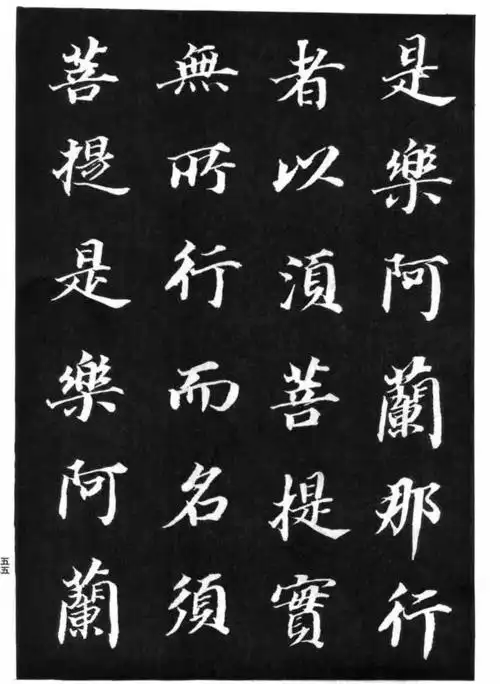 是樂阿蘭那行
者以湏菩提實
無所行而名須
菩提是樂阿蘭
五五